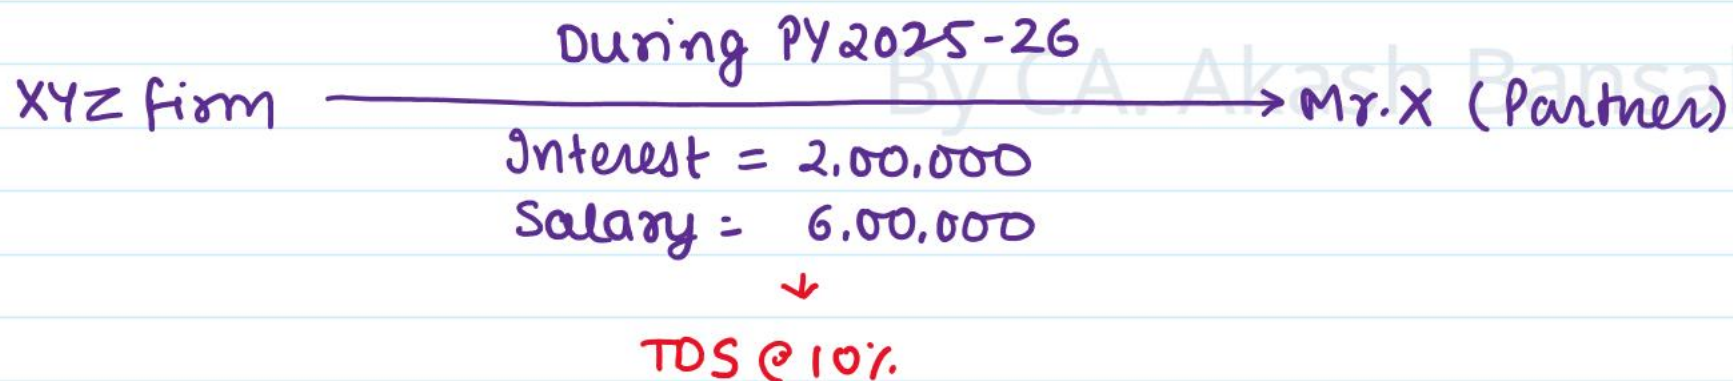 During PY2025-26
By CA. Akash Bansa
XYZ firm → Mr.X (Partner)
Interest = 2,00,000
Salary = 6,00,000
↓
TDS @ 10%